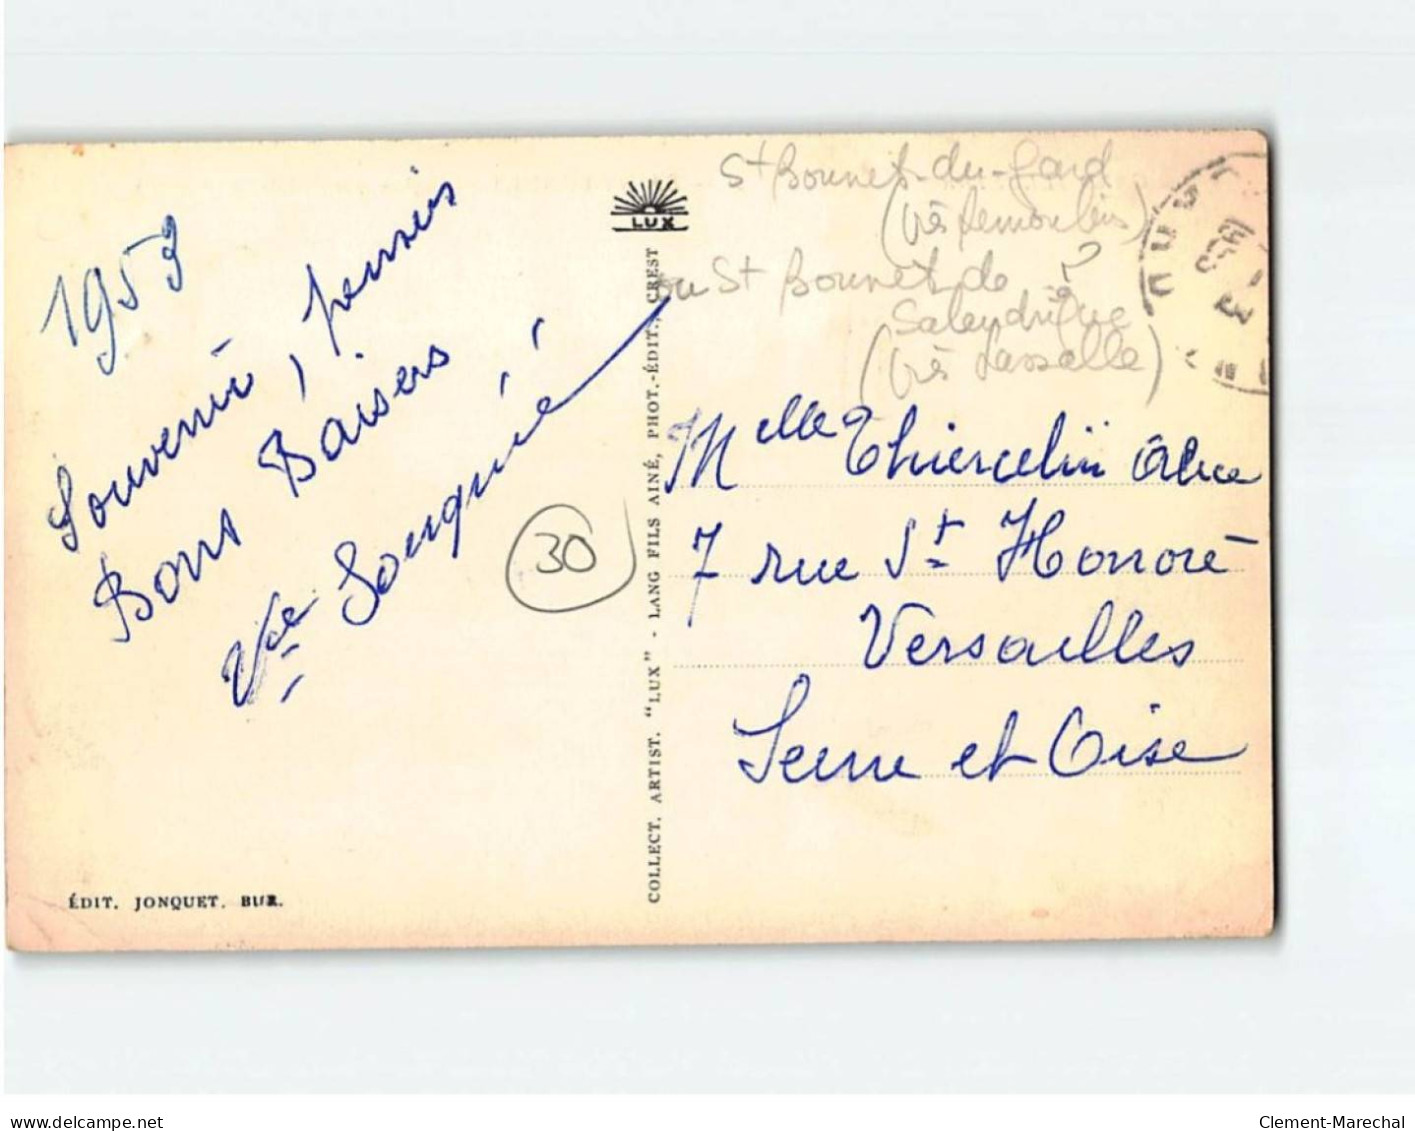 1953
Souvenir, pensées
Bons Baisers
Vve Souquié
ÉDIT. JONQUET. BUR.
30
LUX
COLLECT. ARTIST. "LUX" - LANG FILS AINÉ, PHOT.-ÉDIT., CREST
St Bonnet-du-Gard
(près Remoulins)
ou St Bonnet de ?
Salendrinque
(près Lassalle)
Melle Thiercelin
7 rue St Honoré
Versailles
Seine et Oise
delcampe.net
Clement-Marechal